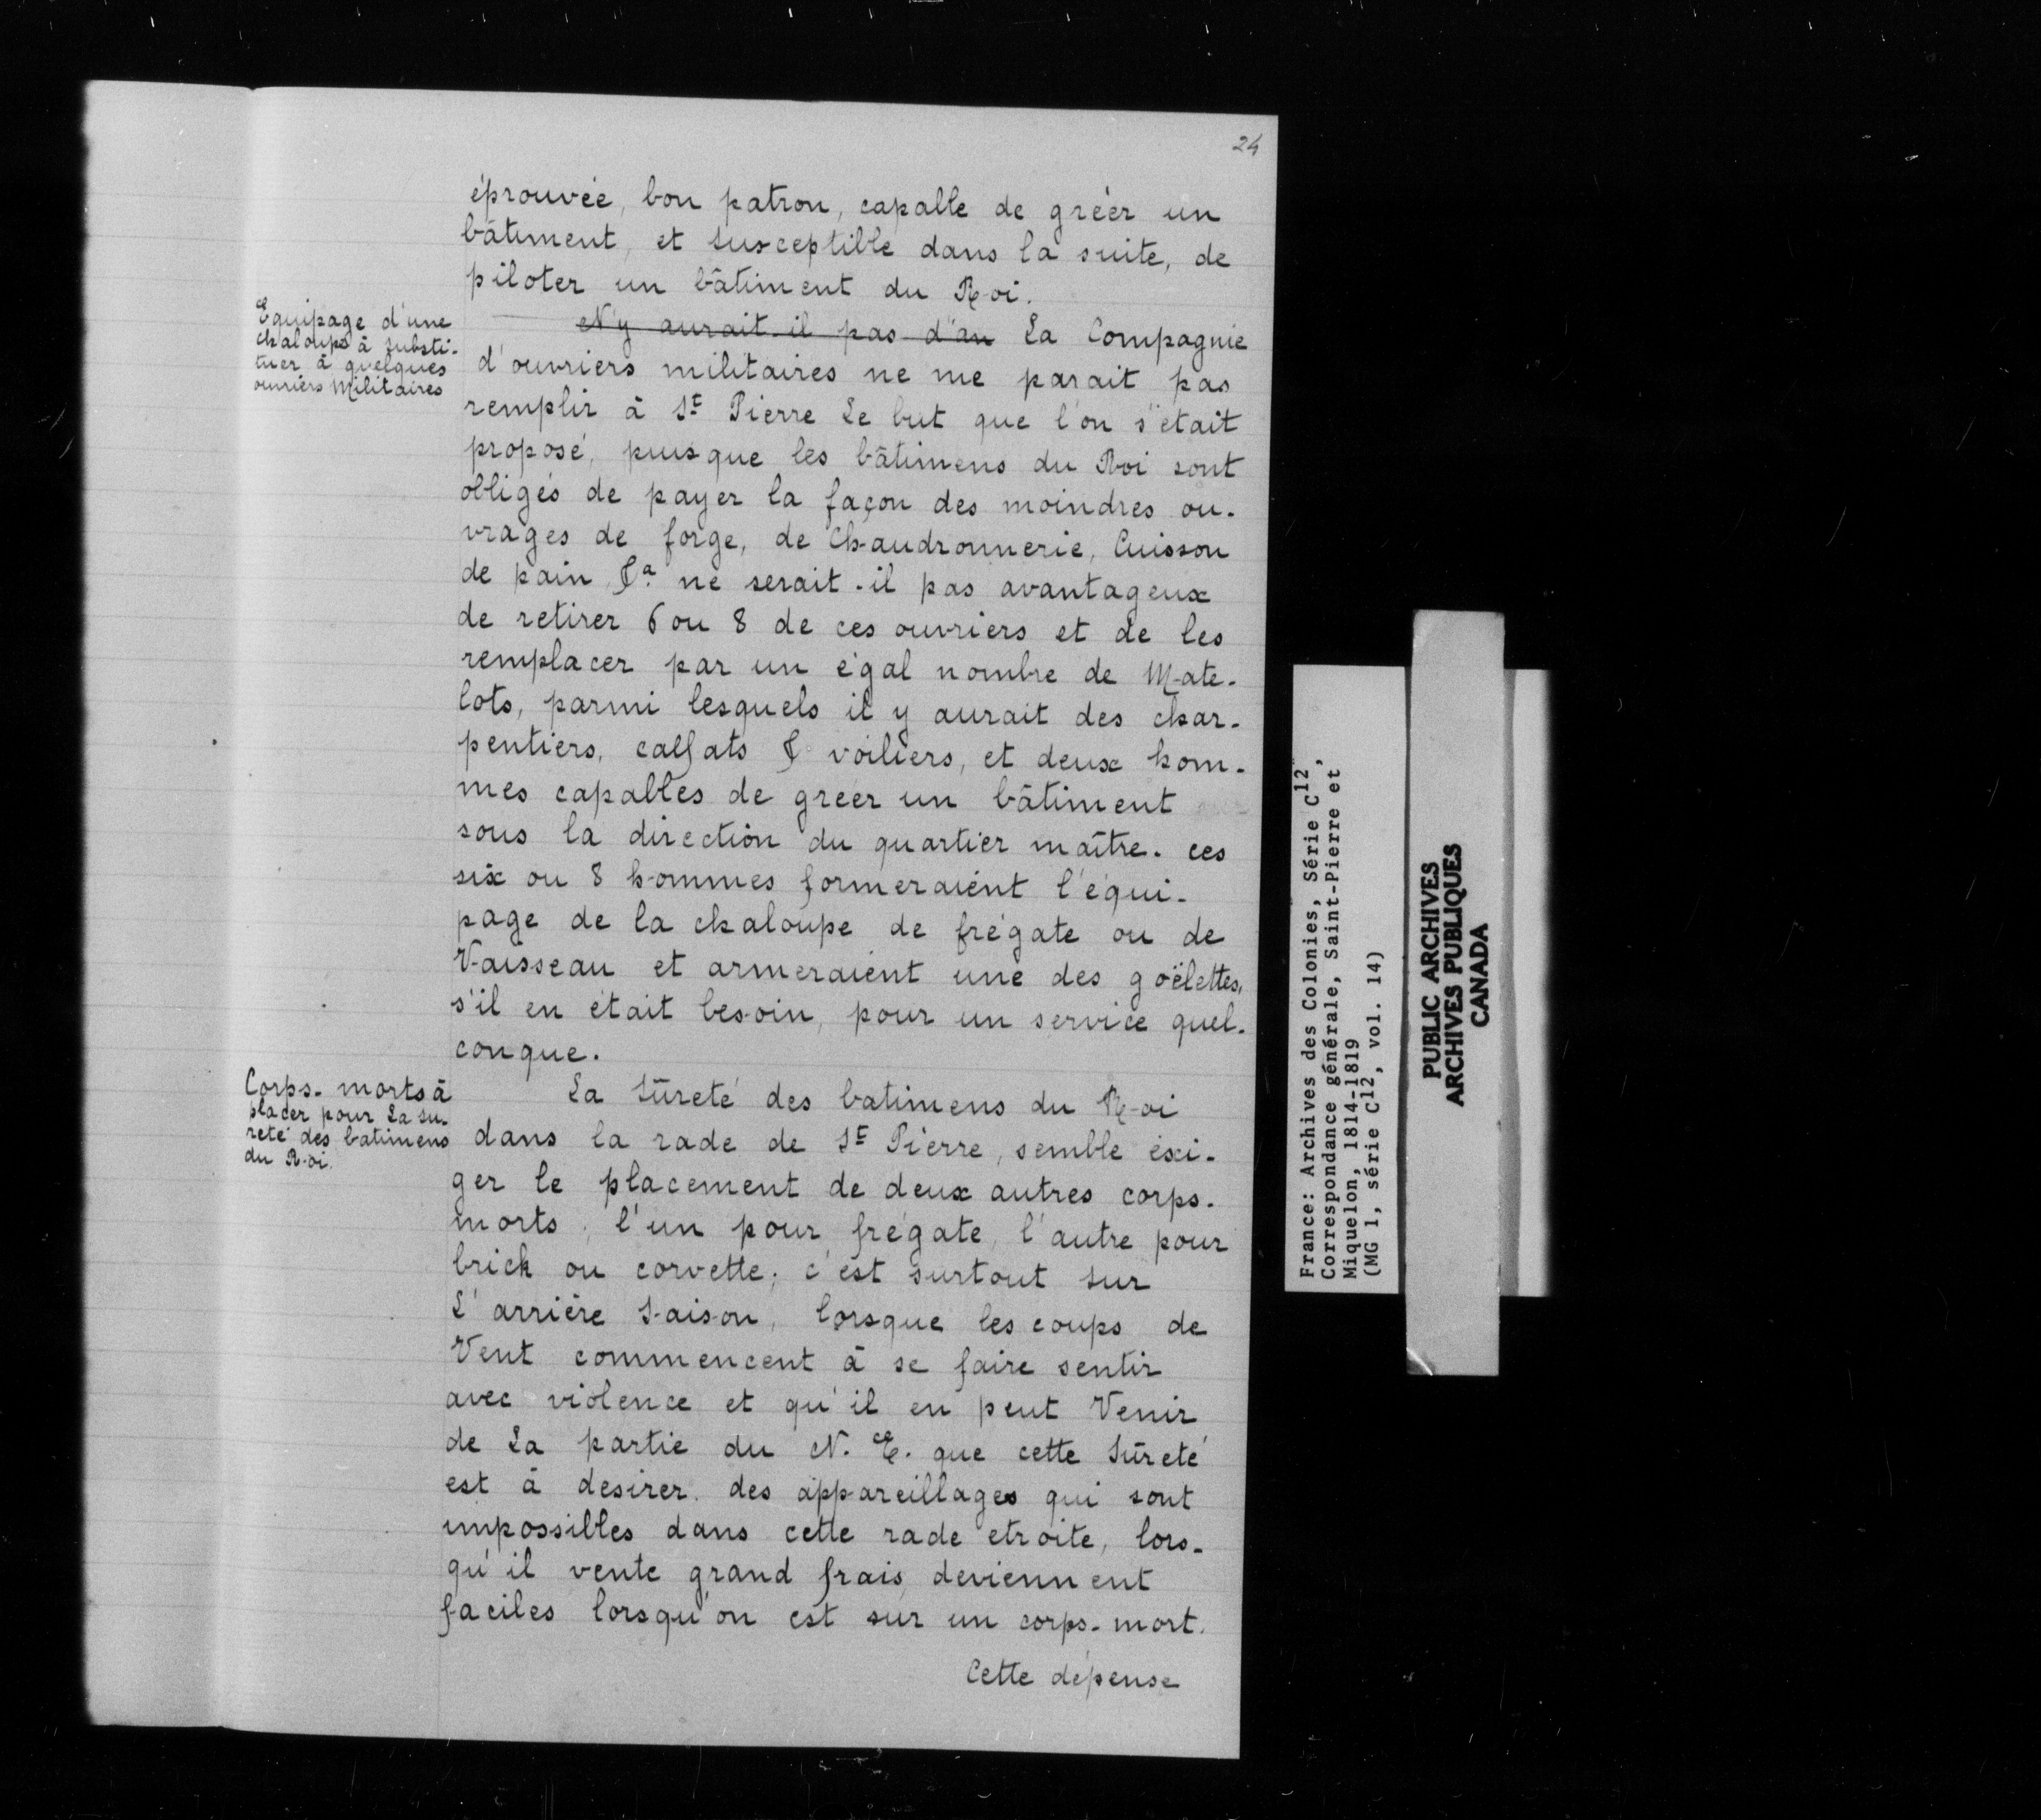 24
éprouvée, bon patron, capable de gréer un
bâtiment, et susceptible dans la suite, de
piloter un bâtiment du Roi.
Equipage d'une
chaloupe à substi-
tuer à quelques
ouvriers Militaires
N'y aurait-il pas d'an La Compagnie
d'ouvriers militaires ne me parait pas
remplir à St Pierre Le but que l'on s'était
proposé, puisque les bâtimens du Roi sont
obligés de payer la façon des moindres ou-
vrages de forge, de Chaudronnerie, Cuisson
de pain &a ne serait-il pas avantageux
de retirer 6 ou 8 de ces ouvriers et de les
remplacer par un égal nombre de Mate-
lots, parmi lesquels il y aurait des char-
pentiers, calfats & voiliers, et deux hom-
mes capables de gréer un bâtiment
sous la direction du quartier maître. ces
six ou 8 hommes formeraient l'équi-
page de la chaloupe de frégate ou de
Vaisseau et armeraient une des goëlettes,
s'il en était besoin, pour un service quel-
conque.
Corps-morts à
placer pour La su-
reté des batimens
du Roi.
La Sûreté des batimens du Roi
dans la rade de St Pierre, semble éxi-
ger le placement de deux autres corps-
morts, l'un pour frégate, l'autre pour
brick ou corvette; c'est surtout sur
L'arrière Saison, lorsque les coups de
Vent commencent à se faire sentir
avec violence et qu'il en peut Venir
de La partie du N. E. que cette Sûreté
est à desirer. des appareillages qui sont
impossibles dans cette rade etroite, lors-
qu'il vente grand frais, deviennent
faciles lorsqu'on est sur un corps-mort.
Cette dépense
France: Archives des Colonies, Série C12,
Correspondance générale, Saint-Pierre et
Miquelon, 1814-1819
(MG 1, série C12, vol. 14)
PUBLIC ARCHIVES
ARCHIVES PUBLIQUES
CANADA